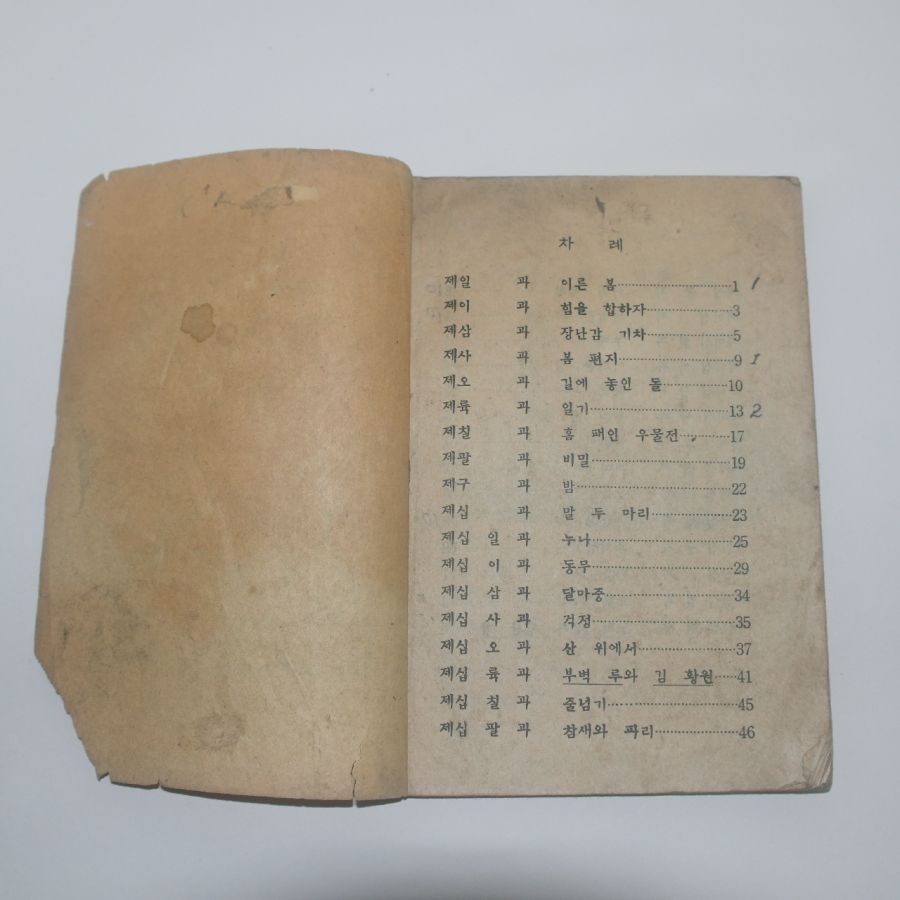 차 례
제일 과 이른 봄 1 1
제이 과 힘을 합하자 3
제삼 과 장난감 기차 5
제사 과 봄 편지 9 1
제오 과 길에 놓인 돌 10
제륙 과 일기 13 2
제칠 과 홈 패인 우물전 17
제팔 과 비밀 19
제구 과 밤 22
제십 과 말 두 마리 23
제십 일 과 누나 25
제십 이 과 동무 29
제십 삼 과 달마중 34
제십 사 과 걱정 35
제십 오 과 산 위에서 37
제십 륙 과 부벽 루와 김 황원 41
제십 칠 과 줄넘기 45
제십 팔 과 참새와 파리 46